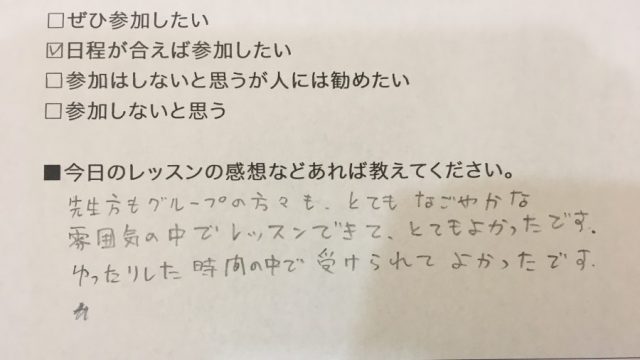 □ぜひ参加したい
☑日程が合えば参加したい
□参加はしないと思うが人には勧めたい
□参加しないと思う
■今日のレッスンの感想などあれば教えてください。
先生方もグループの方々も、とてもなごやかな
雰囲気の中でレッスンできて、とてもよかったです。
ゆったりした時間の中で受けられてよかったです。